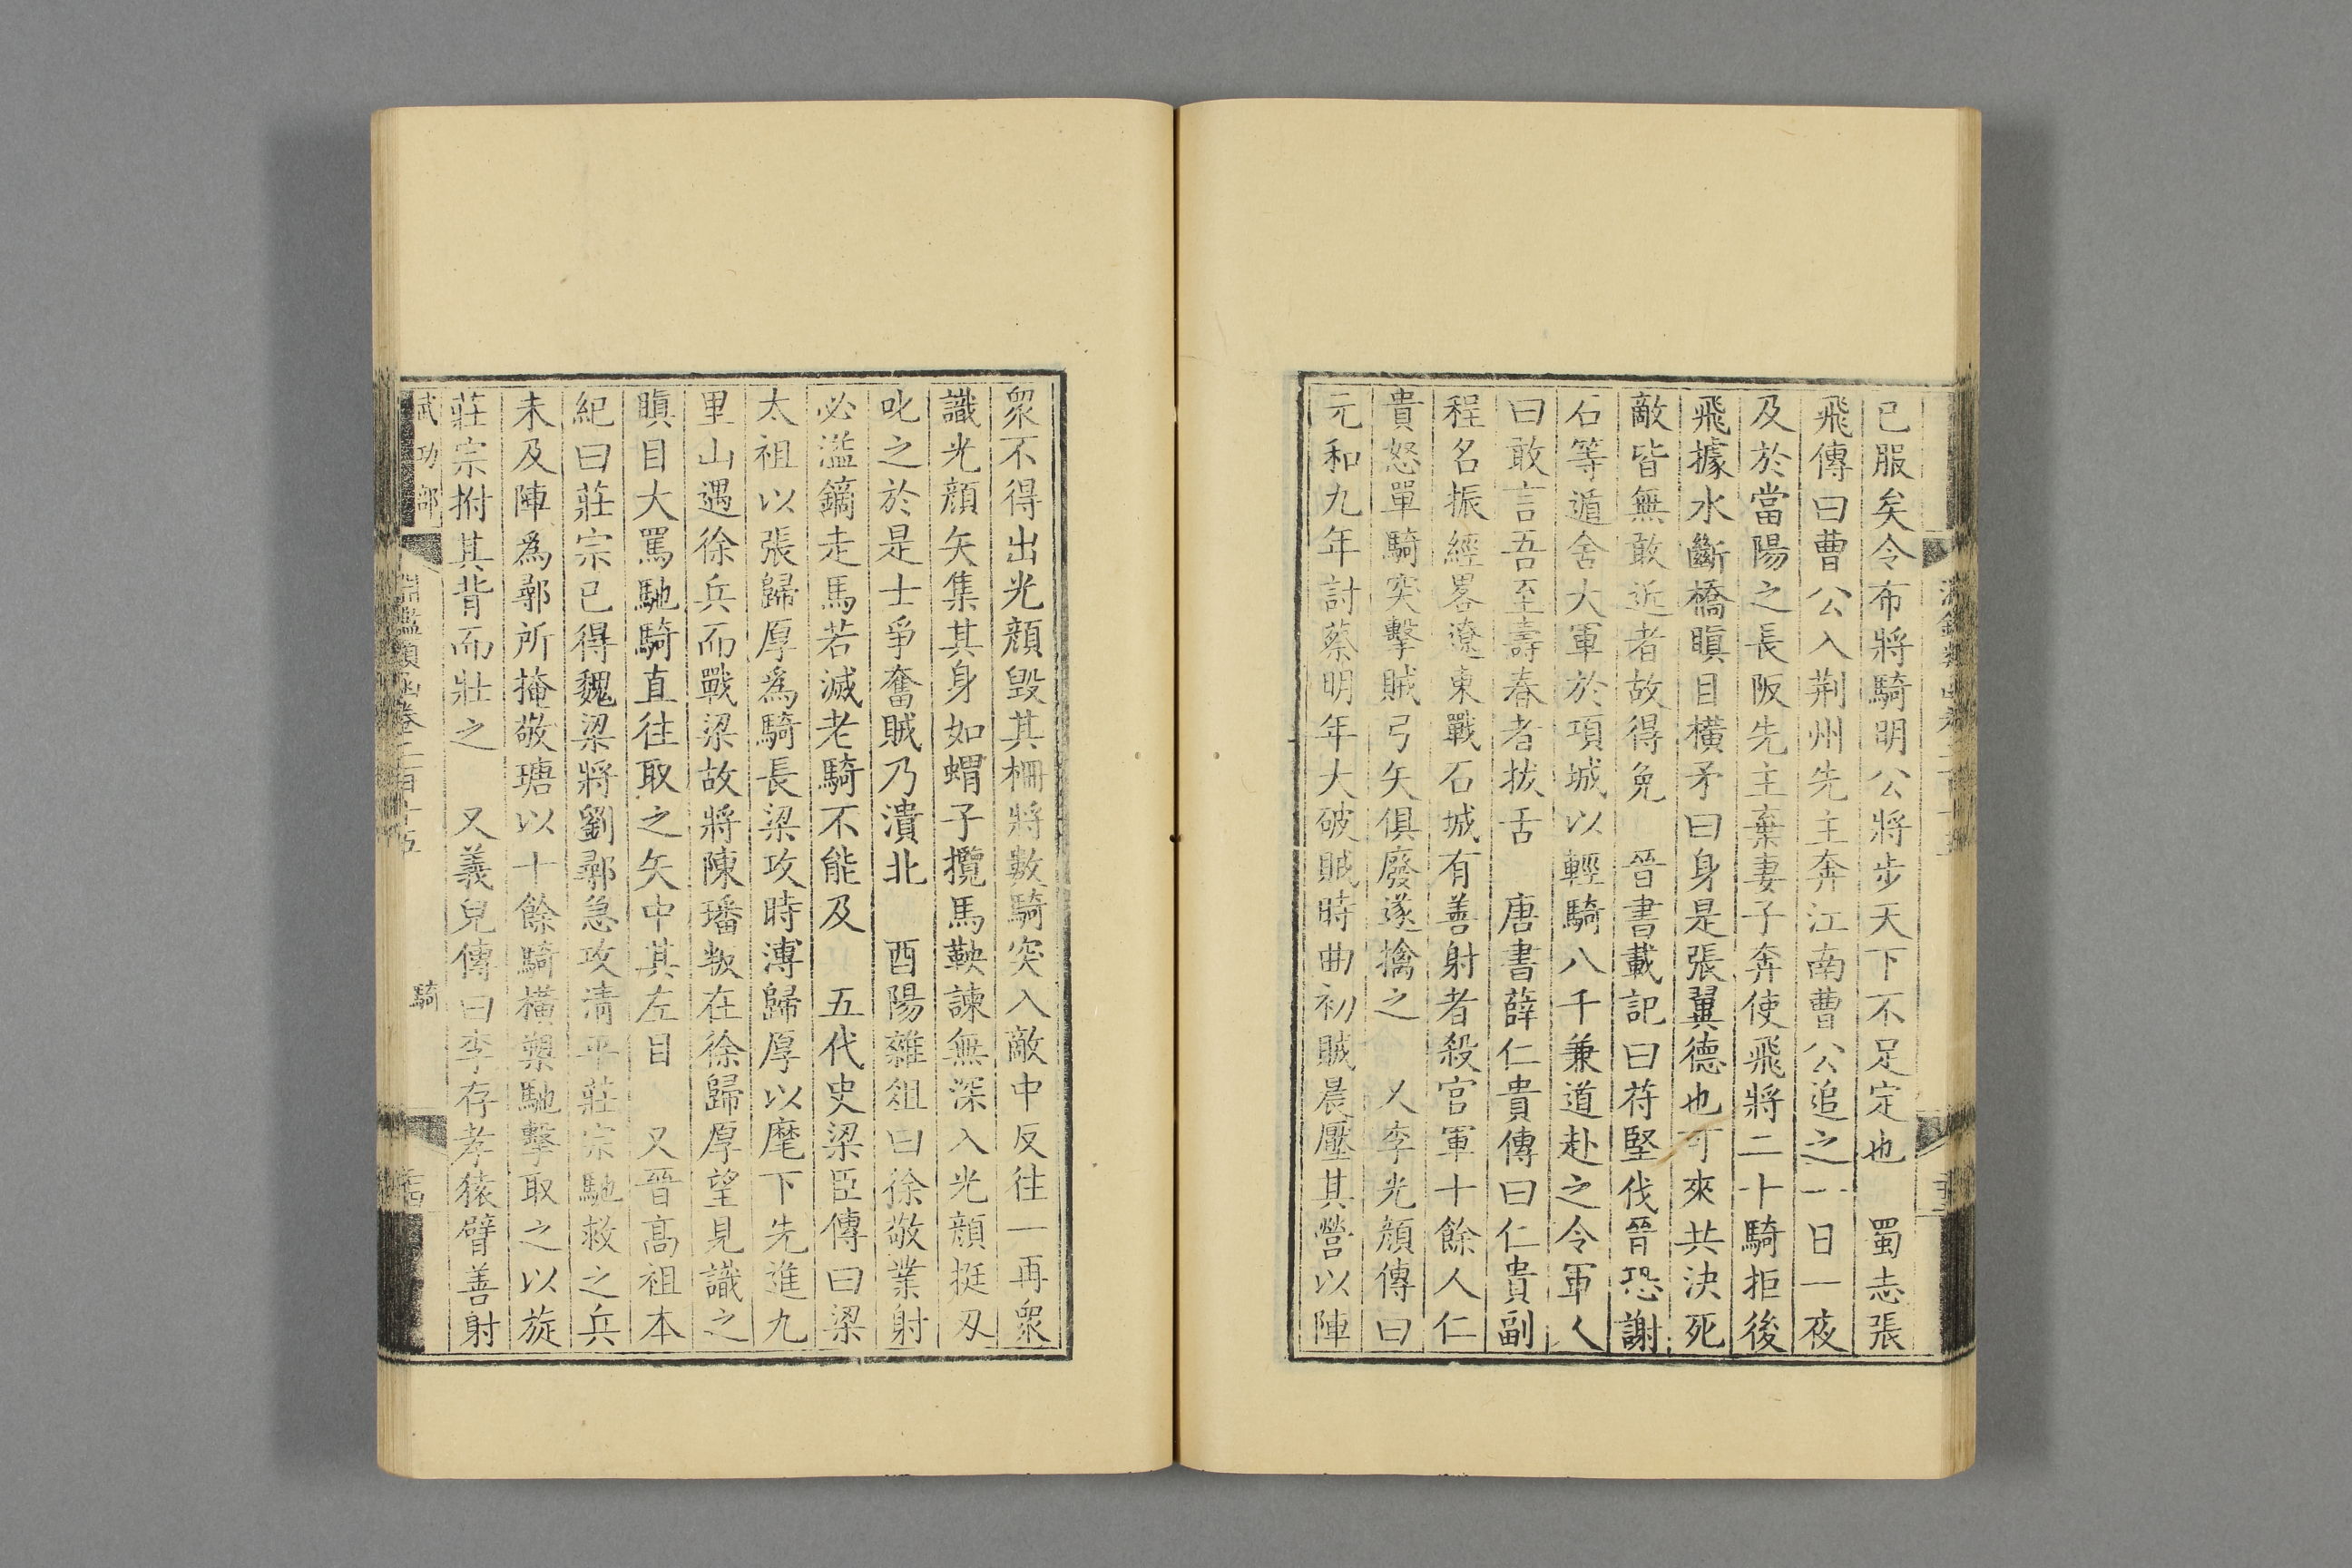 已服矣令布將騎明公將步天下不足定也　蜀志張
飛傳曰曹公入荆州先主奔江南曹公追之一日一夜
及於當陽之長阪先主棄妻子奔使飛將二十騎拒後
飛據水斷橋瞋目橫矛曰身是張翼德也可來共決死
敵皆無敢近者故得免　晉書載記曰苻堅伐晉恐謝
石等遁舍大軍於項城以輕騎八千兼道赴之令軍人
曰敢言吾至壽春者拔舌　唐書薛仁貴傳曰仁貴副
程名振經畧遼東戰石城有善射者殺官軍十餘人仁
貴怒單騎突擊賊弓矢俱廢遂擒之　又李光顔傳曰
元和九年討蔡明年大破賊時曲初賊晨壓其營以陣
衆不得出光顔毀其柵將數騎突入敵中反往一再衆
識光顔矢集其身如蝟子攬馬鞅諫無深入光顔挺刃
叱之於是士爭奮賊乃潰北　酉陽雜俎曰徐敬業射
必溢鏑走馬若滅老騎不能及　五代史梁臣傳曰梁
太祖以張歸厚爲騎長梁攻時溥歸厚以麾下先進九
里山遇徐兵而戰梁故將陳璠叛在徐歸厚望見識之
瞋目大罵馳騎直往取之矢中其左目　又晉高祖本
紀曰莊宗已得魏梁將劉鄩急攻清平莊宗馳救之兵
未及陣爲鄩所掩敬瑭以十餘騎橫槊馳擊取之以旋
莊宗拊其背而壯之　又義兒傳曰李存孝猿臂善射
武功部
淵鑑類函卷二百十五
騎